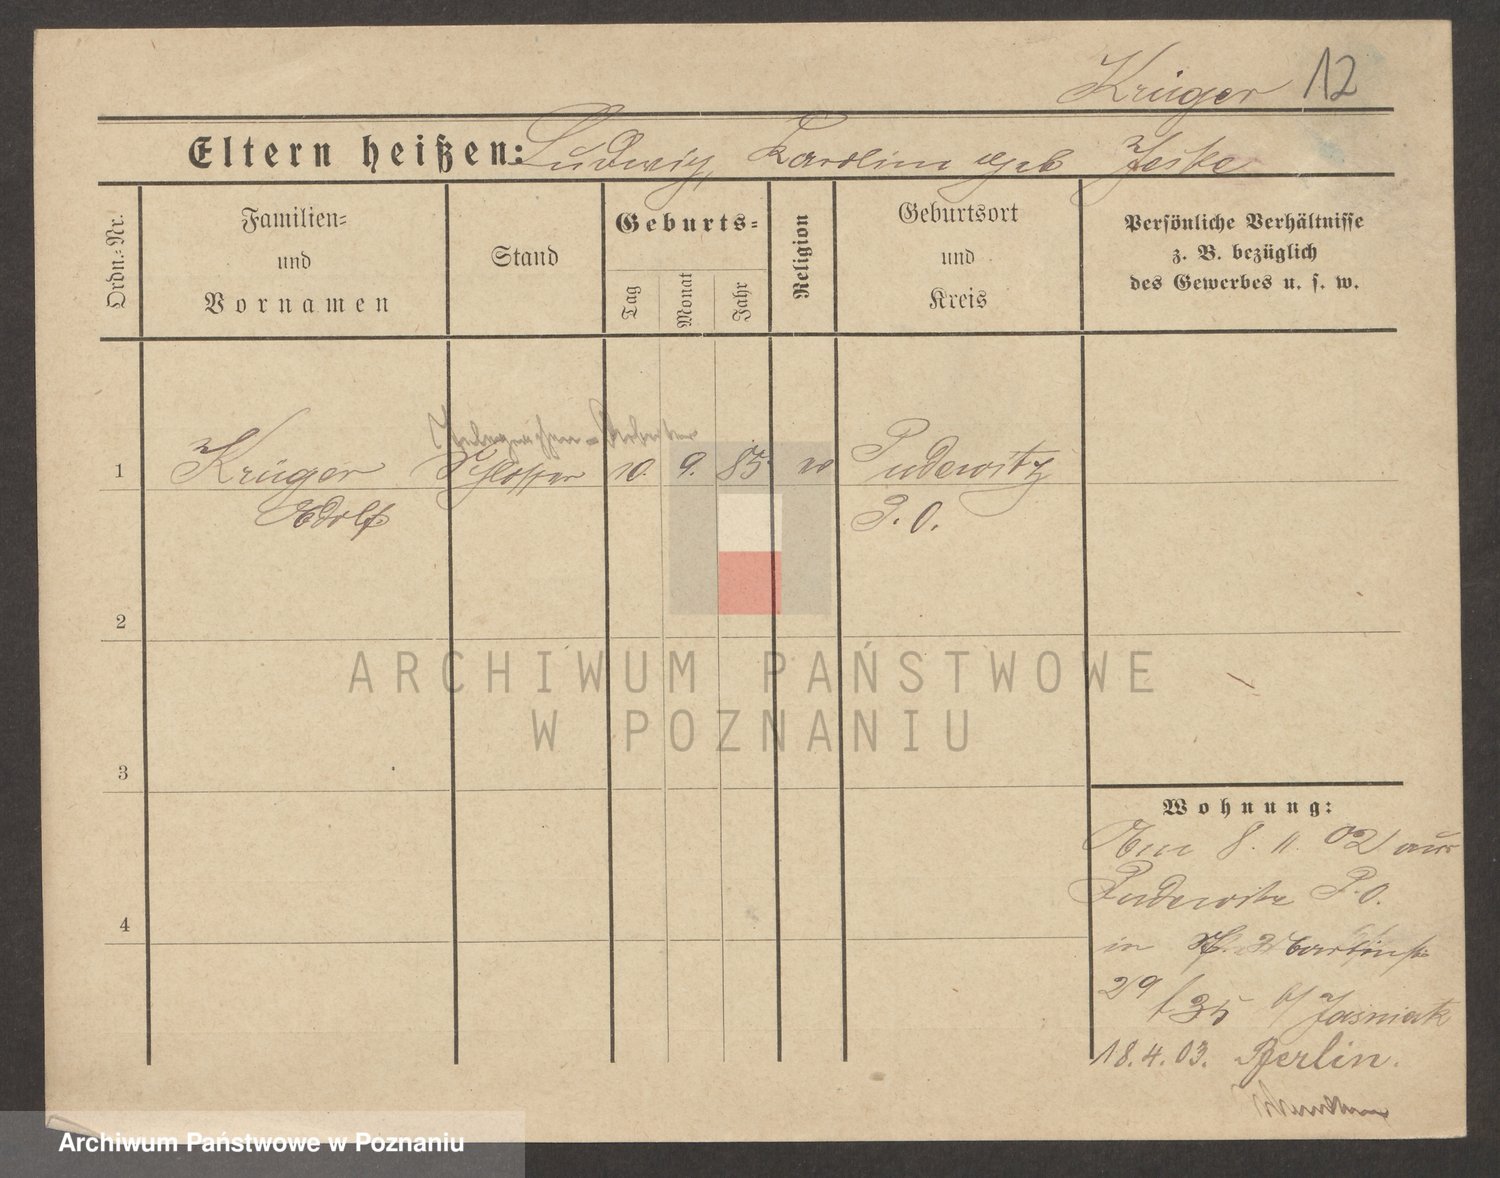 Krüger 12
Eltern heißen: Ludwig, Karoline geb Jeske
Ordn.-Nr.
Familien-
und
Vornamen
Stand
Geburts-
Tag
Monat
Jahr
Religion
Geburtsort
und
Kreis
Persönliche Verhältnisse
z. B. bezüglich
des Gewerbes u. s. w.
Telegraphen-Arbeiter
1 Krüger Schlosser 10. 9. 85 Pudewitz
Adolf P. O.
2
ARCHIWUM PAŃSTWOWE
W POZNANIU
3
Wohnung:
Am 8. 11. 02 aus
Pudewitz P. O.
in St. Martinstr
29 / 35 b/ Jasniak
4
18. 4. 03. Berlin.
Archiwum Państwowe w Poznaniu